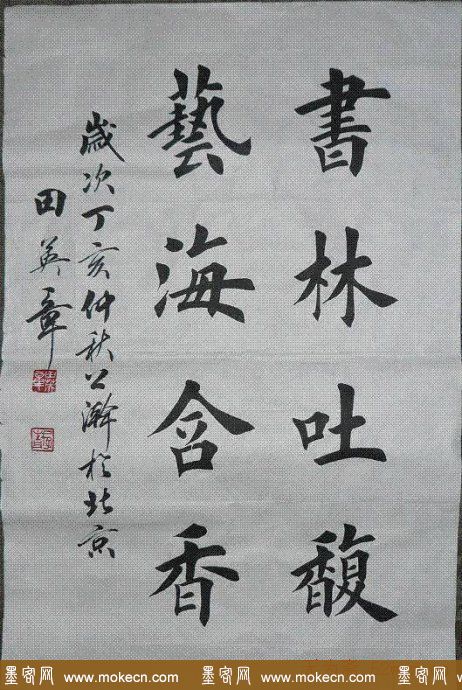 書林吐馥
藝海含香
歲次丁亥仲秋以瀚於北京
田英章
墨客网 www.mokecn.com 墨客网 www.mokecn.com 墨客网